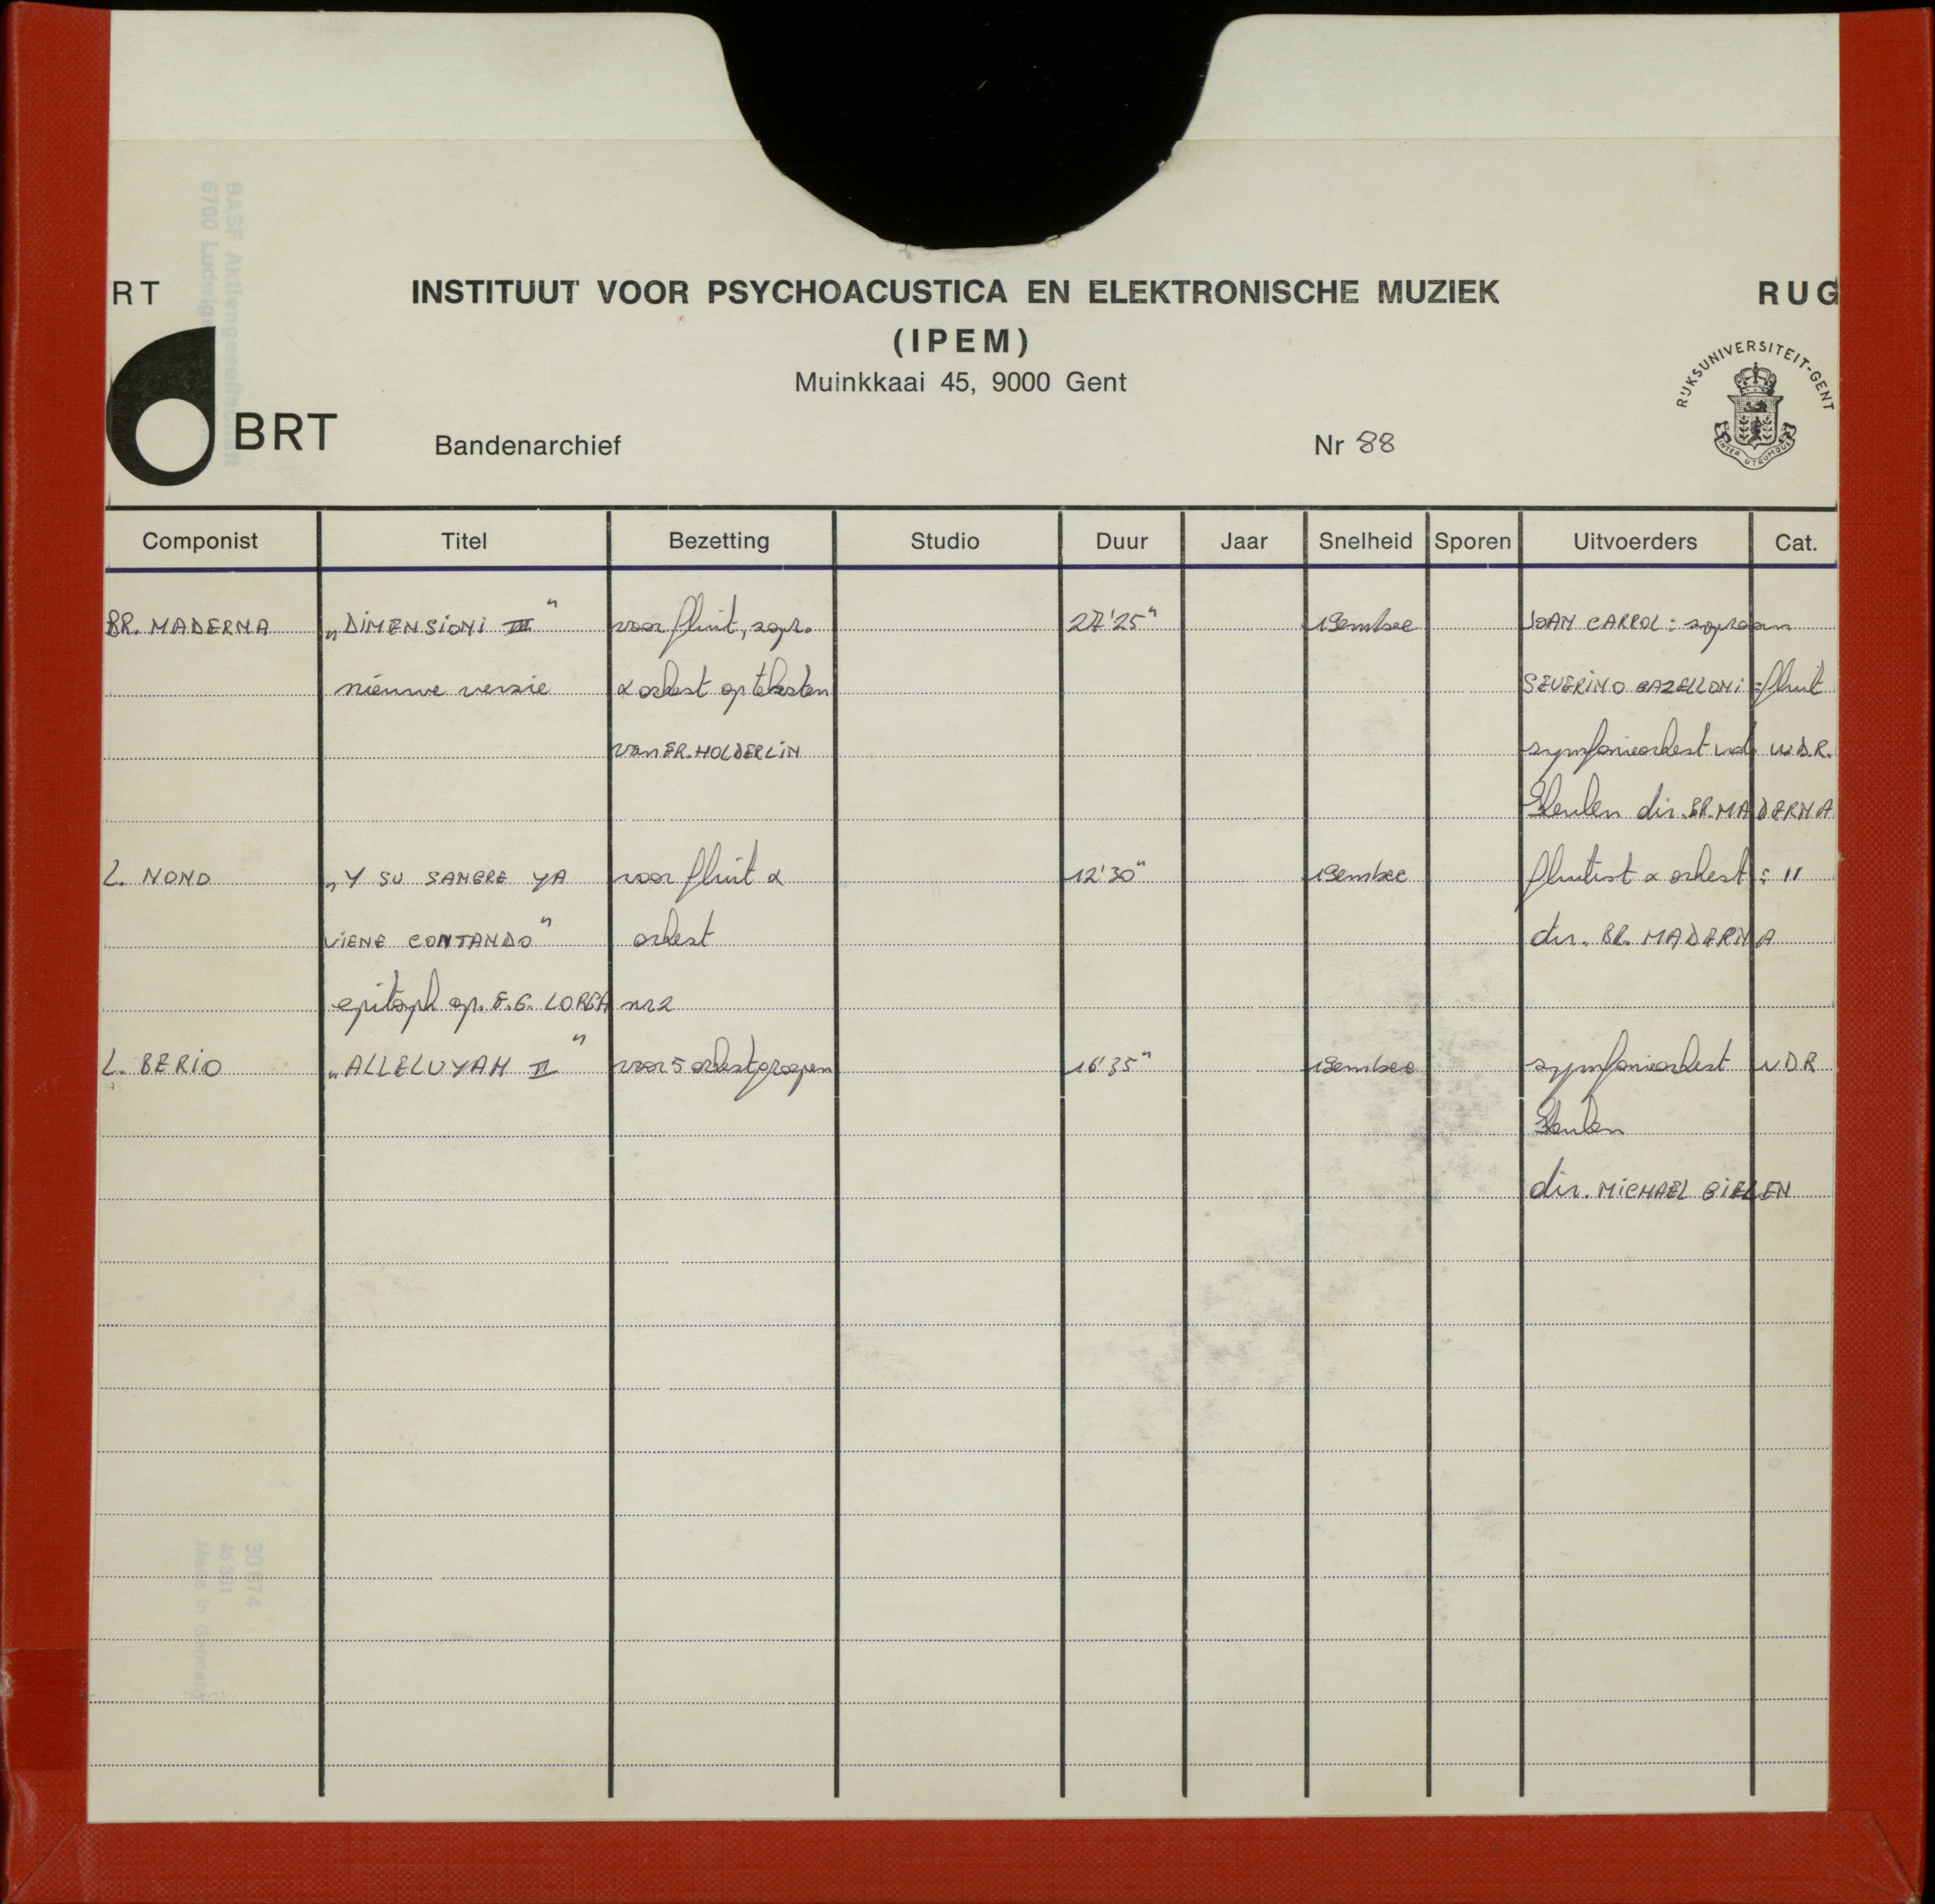 RT INSTITUUT VOOR PSYCHOACUSTICA EN ELEKTRONISCHE MUZIEK RUG
(IPEM)
Muinkkaai 45, 9000 Gent
RIJKSUNIVERSITEIT-GENT
INTER UTRUMQUE
BRT Bandenarchief Nr 88
Componist Titel Bezetting Studio Duur Jaar Snelheid Sporen Uitvoerders Cat.
BR. MADERNA „DIMENSIONI III" voor fluit, sopr. 27'25" 19cm/sec JOAN CARROL: sopraan
nieuwe versie & orkest op teksten SEVERINO GAZELLONI: fluit
van FR. HOLDERLIN symfonieorkest vd W.D.R.
Keulen dir. BR. MADERNA
L. NONO „Y SU SANGRE YA voor fluit & 12'30" 19cm/sec fluitist & orkest: "
VIENE CONTANDO" orkest dir. BR. MADERNA
epitaph op. F.G. LORCA nr 2
L. BERIO „ALLELUYAH II" voor 5 orkestgroepen 16'35" 19cm/sec symfonieorkest WDR
Keulen
dir. MICHAEL GIELEN
BASF Aktiengesellschaft
Made in Germany